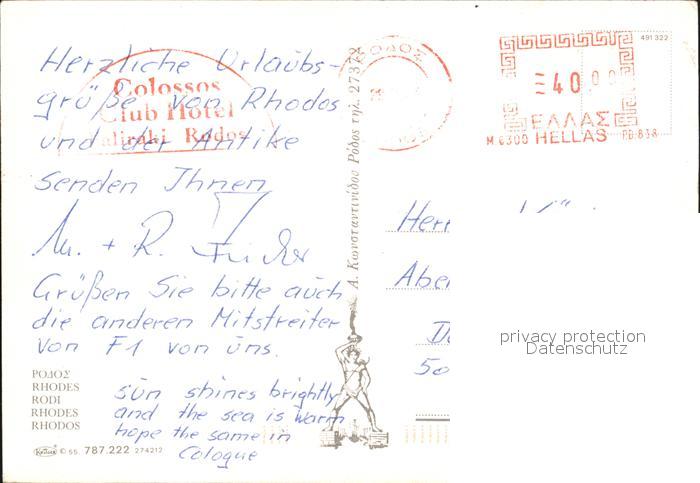 Herzliche Urlaubs-
grüße von Rhodos
und der Antike
senden Ihnen
M. + R.
Grüßen Sie bitte auch
die anderen Mitstreiter
von F1 von uns.
sun shines brightly
and the sea is warm
hope the same in
Cologne
Colossos
Club Hotel
aliraki Rodos
ΡΟΔΟΣ
RHODES
RODI
RHODES
RHODOS
© 55. 787.222 274212
Δ. Κωνσταντινίδου Ρόδος τηλ. 27372
ΡΟΔΟΣ
491 322
40,00
ΕΛΛΑΣ
M 6300 HELLAS PB 838
Herr
Aber
50
privacy protection
Datenschutz